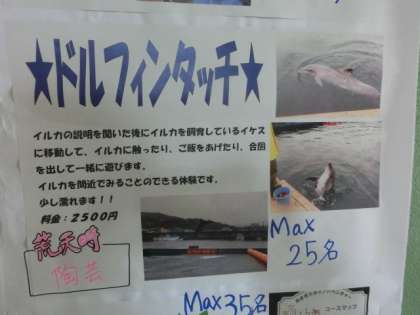 ★ドルフィンタッチ★
イルカの説明を聞いた後にイルカを飼育しているイケス
に移動して、イルカに触ったり、ご飯をあげたり、合図
を出して一緒に遊びます。
イルカを間近でみることのできる体験です。
少し濡れます！！
料金：2500円
荒天時
陶芸
Max
25名
Max 35名
コースマップ